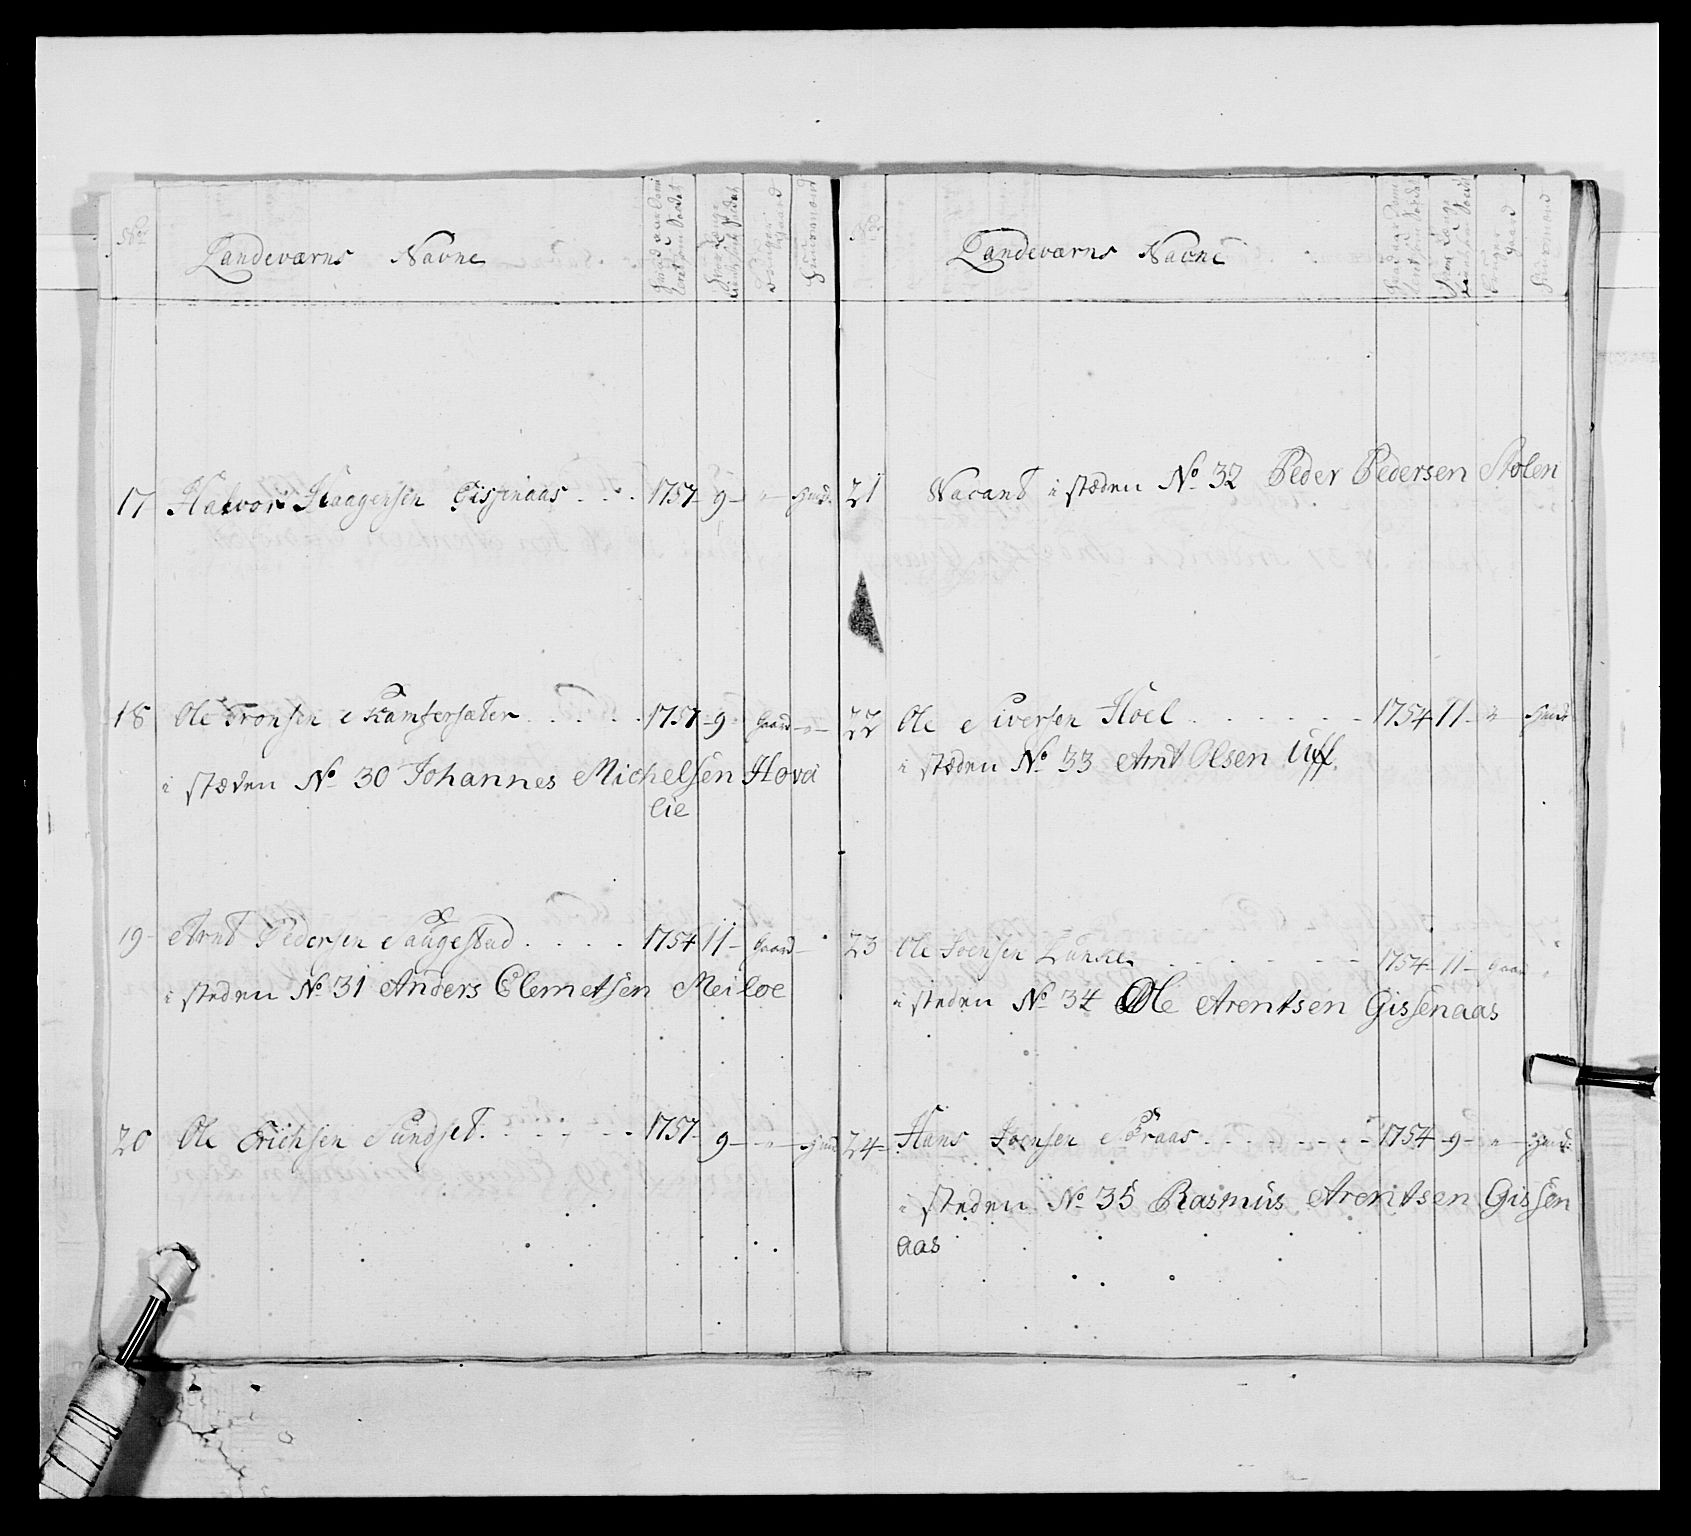 No
Landeværns Navne
17 Halvor Haagensen Gissenaas . . . 1757 - 9 - " - Huusm:
18 Ole Tronsen Kamsersæter . . . . . 1757 - 9 - Gaard - " -
i stæden No 30 Johannes Michelsen Hovd
lie
19 - Arnt Pedersen Haugestad . . . . 1754 11 - Gaard -
i steden No 31 Anders Clemetsen Meiloe
20 Ole Erichsen Sundset . . . . . 1757 - 9 - " -
No
Landeværns Navne
21 Vacant i stæden No 32 Peder Pedersen Stolen
22 Ole Siversen Hoel . . . . . . 1754 11 - " -
i stæden No 33 Arnt Olsen Uff.
23 Ole Joensen . . . . . . 1754 - 11 - Gaard
i steden No 34 Ole Arentsen Gissenaas
24 - Hans Joensen . . . . . . . 1754 - 9 - " -
i steden No 35 Rasmus Arentsen Gissen
aas